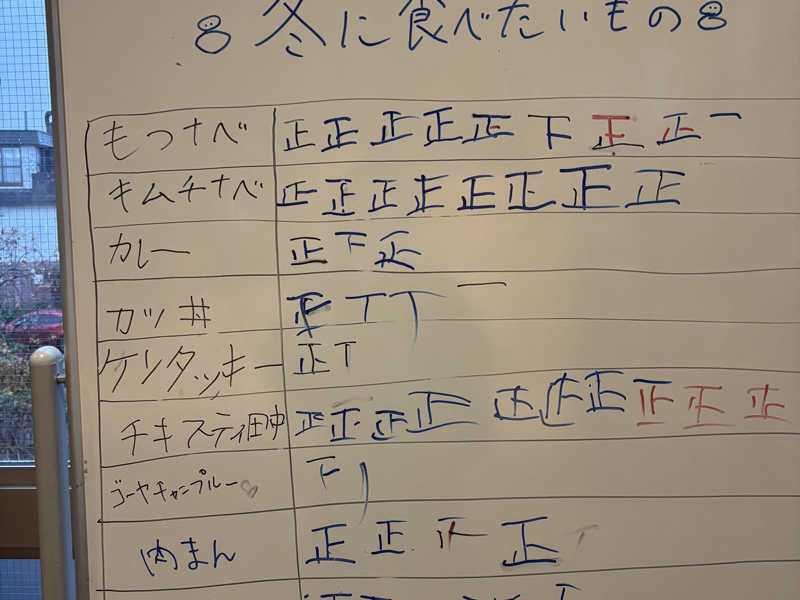 8 冬に食べたいもの 8
もつナベ 正 正 正 正 正 下 正 正 一
キムチナベ 正 正 正 正 正 正 正 正
カレー 正 下 正
カツ丼 正 T T 一
ケンタッキー 正 T
チキスティ田中 正 正 正 正 正 正 正 正 正 正
ゴーヤチャンプルー 下
肉まん 正 正 正 正